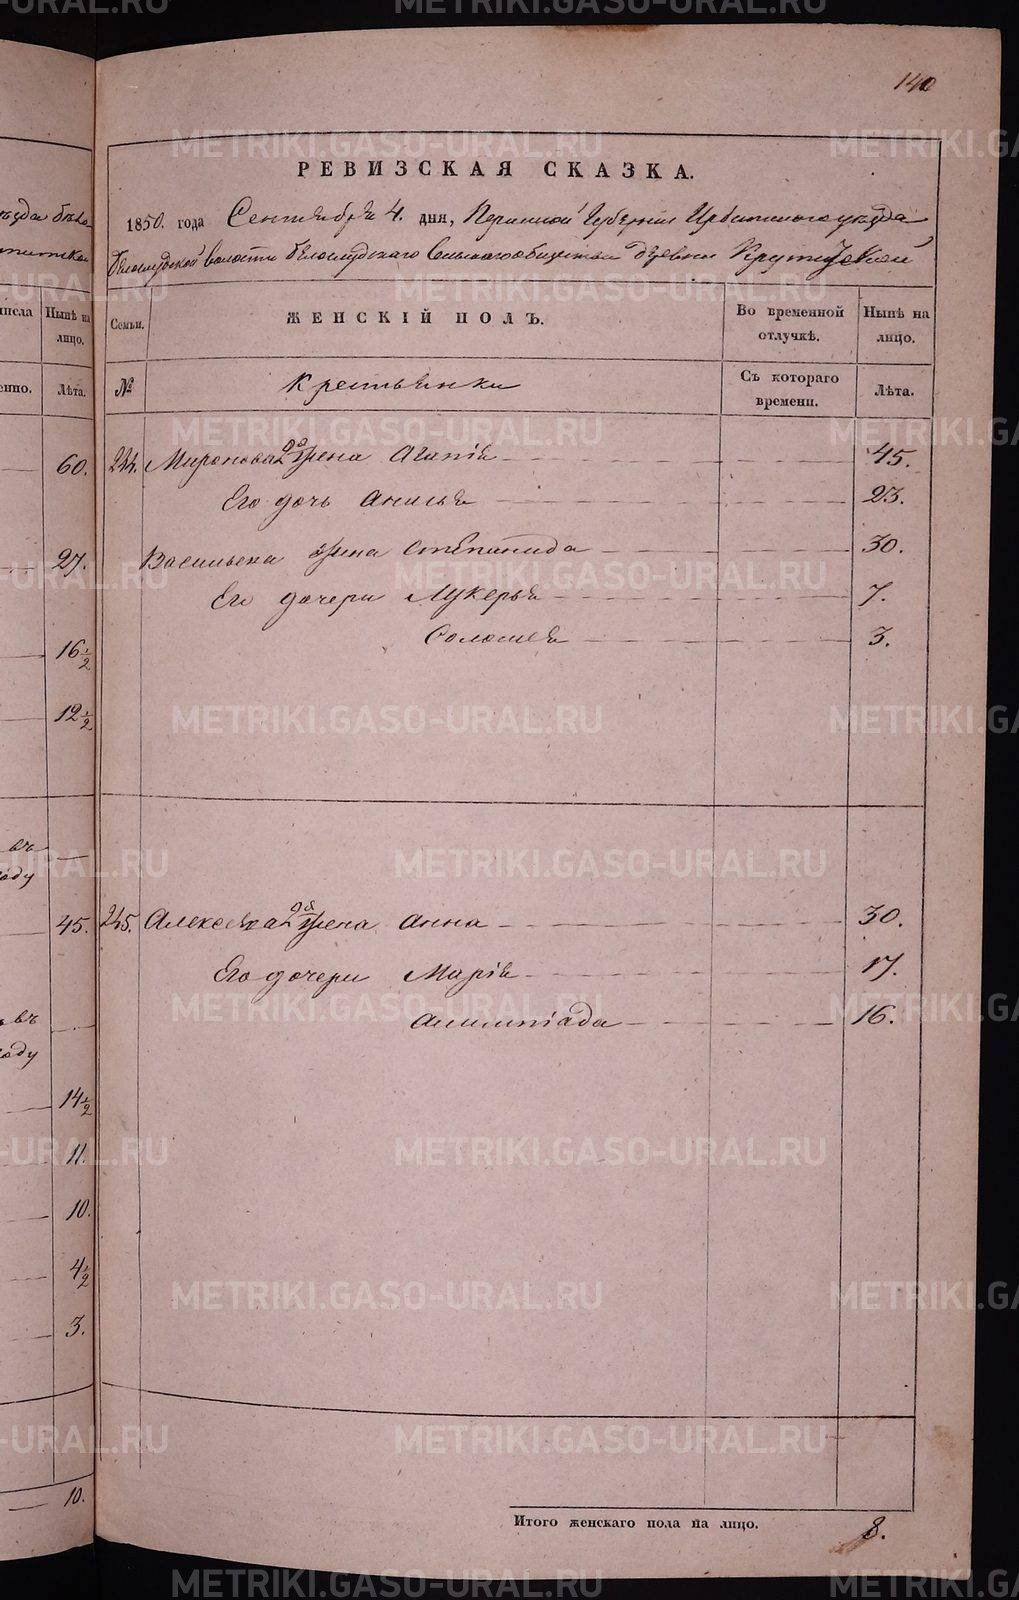 140
РЕВИЗСКАЯ СКАЗКА.
1850. года Сентября 4. дня, Пермской Губернии Ирбитского уезда
Белослудской волости Белослудского Сельского общества деревни
Семьи.
ЖЕНСКІЙ ПОЛЪ.
Во временной отлучкѣ.
Нынѣ на лицо.
№
Крестьянки
Съ котораго времени.
Лѣта.
244. Миронова 2я жена Агапія 45.
Его дочь Анисья 23.
Васильева жена Степанида 30.
Его дочери Лукерья 7.
Соломея 3.
245. Алексеева 2я жена Анна 30.
Его дочери Марія 17.
Алимпіада 16.
Итого женскаго пола на лицо. 8.
уезда
Нынѣ на лицо.
Лѣта.
60.
27.
16 1/2
12 1/2
въ
году
45.
въ
году
14 1/2
11.
10.
4 1/2
3.
10.
METRIKI.GASO-URAL.RU